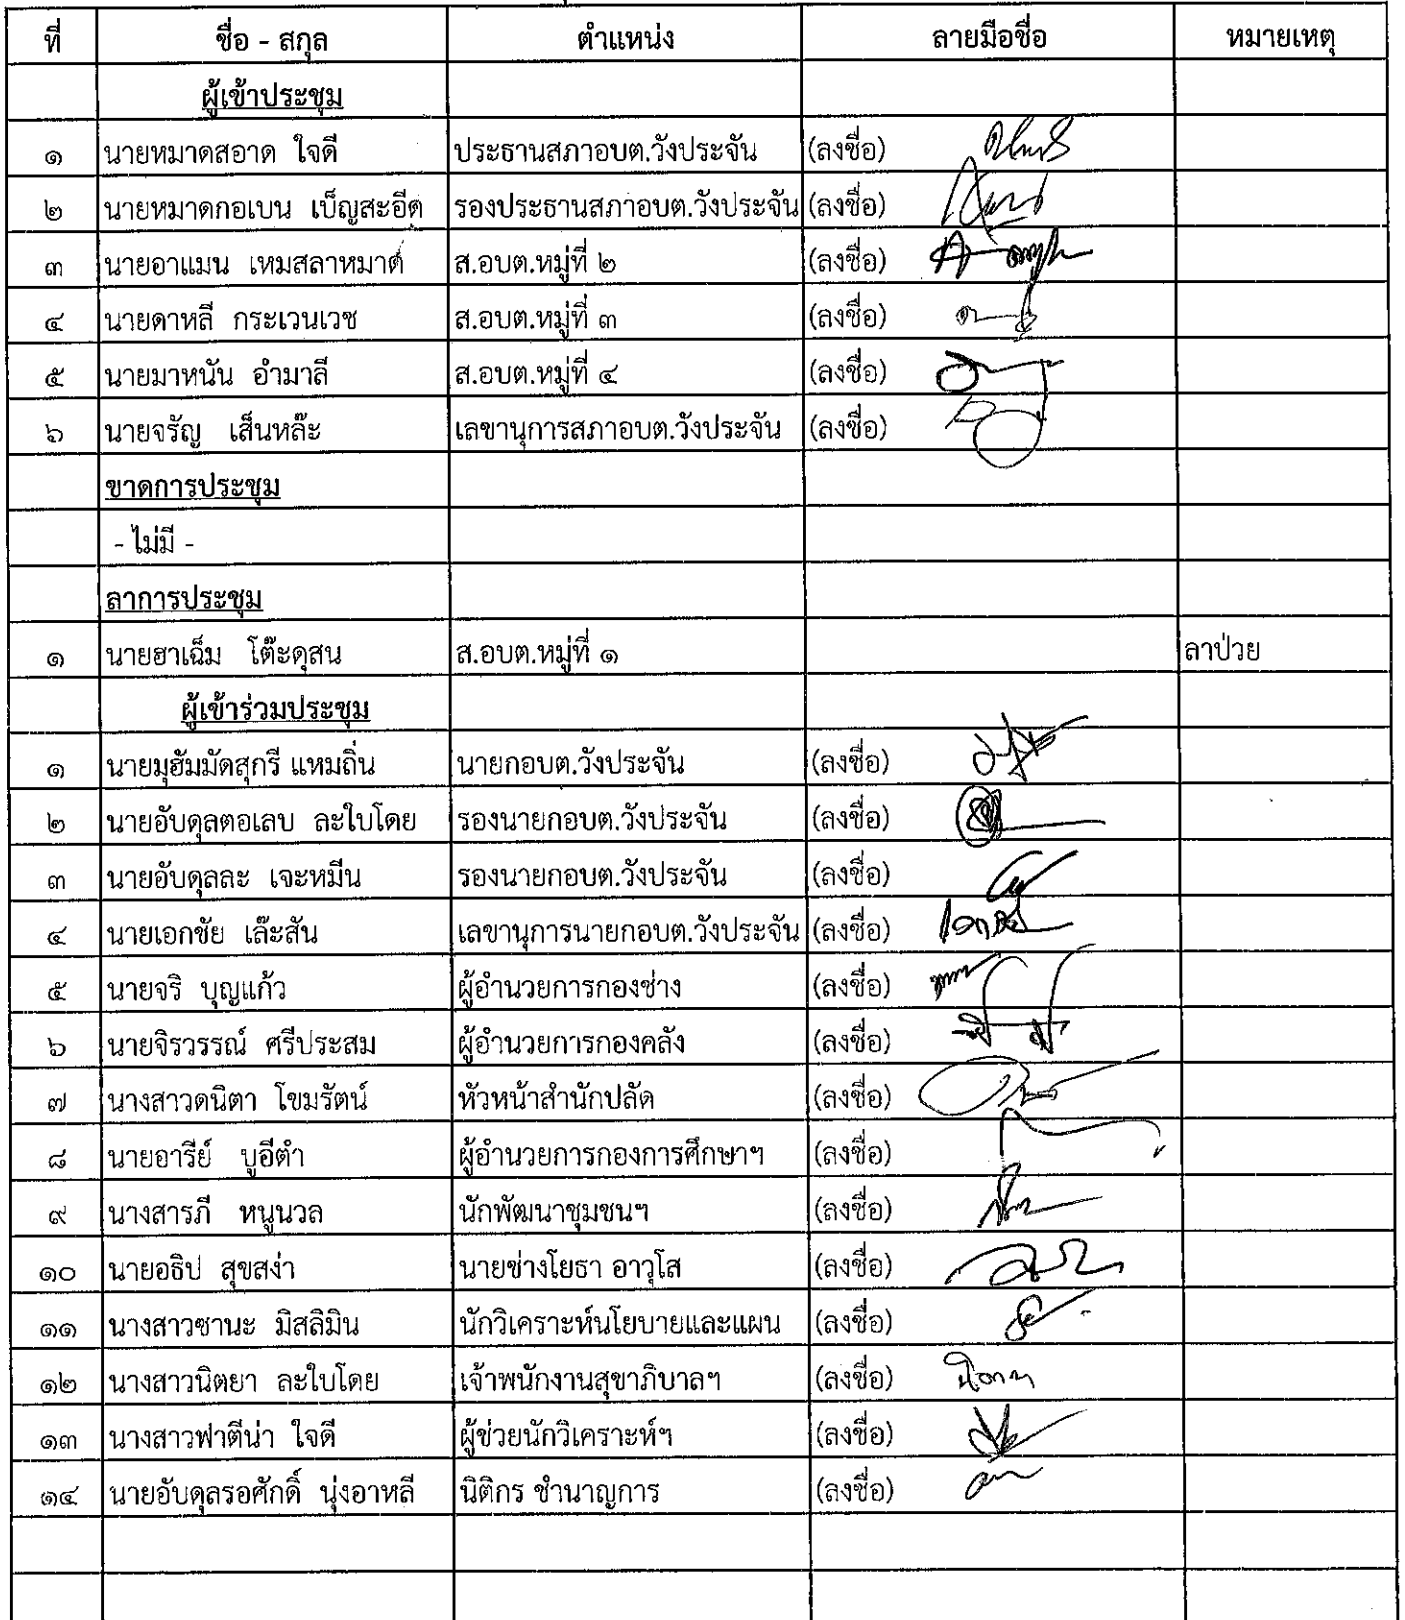 ที่ ชื่อ - สกุล ตำแหน่ง ลายมือชื่อ หมายเหตุ
ผู้เข้าประชุม
๑ นายหมาดสอาด ใจดี ประธานสภาอบต.วังประจัน (ลงชื่อ)
๒ นายหมาดกอเบน เบ็ญสะอีด รองประธานสภาอบต.วังประจัน (ลงชื่อ)
๓ นายอาแมน เหมสลาหมาด์ ส.อบต.หมู่ที่ ๒ (ลงชื่อ)
๔ นายดาหลี กระเวนเวช ส.อบต.หมู่ที่ ๓ (ลงชื่อ)
๕ นายมาหนัน อำมาลี ส.อบต.หมู่ที่ ๔ (ลงชื่อ)
๖ นายจรัญ เส็นหล๊ะ เลขานุการสภาอบต.วังประจัน (ลงชื่อ)
ขาดการประชุม
- ไม่มี -
ลาการประชุม
๑ นายฮาเฉ็ม โต๊ะดุสน ส.อบต.หมู่ที่ ๑ ลาป่วย
ผู้เข้าร่วมประชุม
๑ นายมุฮัมมัดสุกรี แหมถิ่น นายกอบต.วังประจัน (ลงชื่อ)
๒ นายอับดุลตอเลบ ละใบโดย รองนายกอบต.วังประจัน (ลงชื่อ)
๓ นายอับดุลละ เจะหมีน รองนายกอบต.วังประจัน (ลงชื่อ)
๔ นายเอกชัย เล๊ะสัน เลขานุการนายกอบต.วังประจัน (ลงชื่อ)
๕ นายจริ บุญแก้ว ผู้อำนวยการกองช่าง (ลงชื่อ)
๖ นายจิรวรรณ์ ศรีประสม ผู้อำนวยการกองคลัง (ลงชื่อ)
๗ นางสาวดนิตา โขมรัตน์ หัวหน้าสำนักปลัด (ลงชื่อ)
๘ นายอารีย์ บูอีตำ ผู้อำนวยการกองการศึกษาฯ (ลงชื่อ)
๙ นางสารภี หนูนวล นักพัฒนาชุมชนฯ (ลงชื่อ)
๑๐ นายอธิป สุขสง่า นายช่างโยธา อาวุโส (ลงชื่อ)
๑๑ นางสาวซานะ มิสลิมิน นักวิเคราะห์นโยบายและแผน (ลงชื่อ)
๑๒ นางสาวนิตยา ละใบโดย เจ้าพนักงานสุขาภิบาลฯ (ลงชื่อ)
๑๓ นางสาวฟาตีน่า ใจดี ผู้ช่วยนักวิเคราะห์ฯ (ลงชื่อ)
๑๔ นายอับดุลรอศักดิ์ นุ่งอาหลี นิติกร ชำนาญการ (ลงชื่อ)